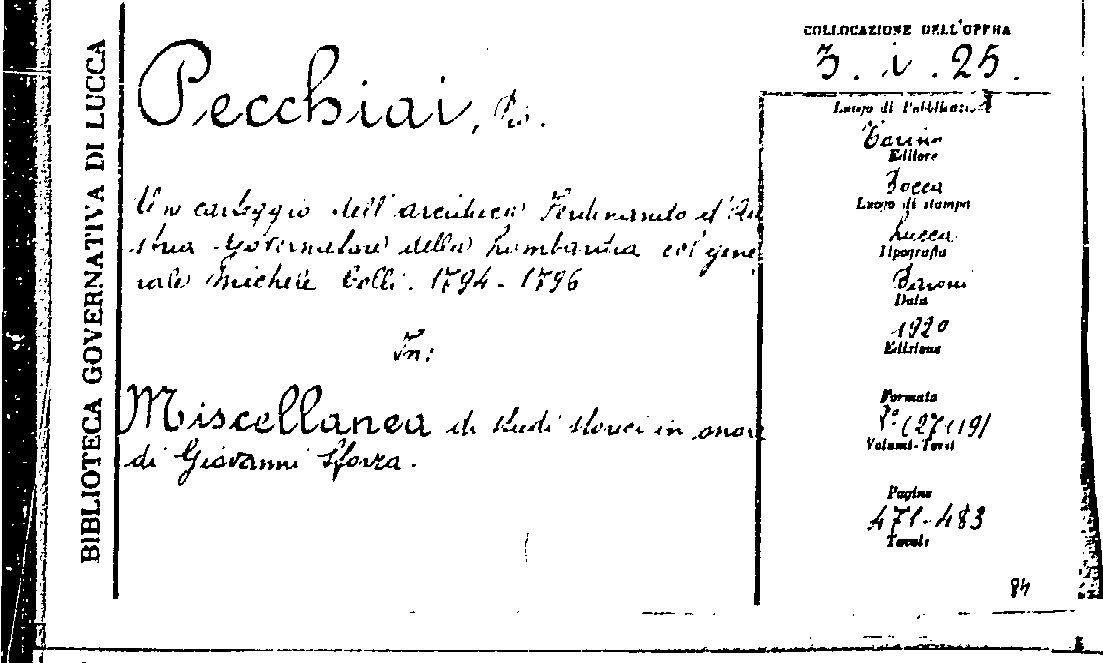 BIBLIOTECA GOVERNATIVA DI LUCCA
COLLOCAZIONE DELL'OPERA
3. i. 25.
Pecchiai,
Un carteggio dell'arciduca Ferdinando d'Au
stria Governatore della Lombardia col gene
rale Michele Colli. 1794-1796
In:
Miscellanea di studi storici in onore
di Giovanni Sforza.
Luogo di Pubblicazione
Torino
Editore
Bocca
Luogo di stampa
Lucca
Tipografia
Baroni
Data
1920
Edizione
Formato
8° (27×19)
Volumi-Tomi
Pagine
471-483
Tavole
84